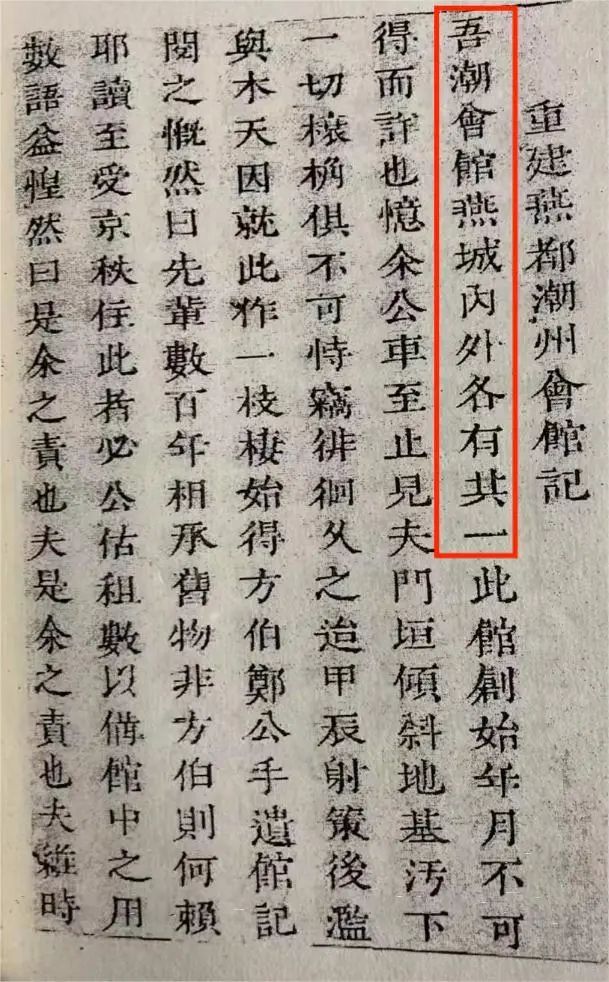 重建燕都潮州會館記
吾潮會館燕城內外各有其一此館創始年月不可
得而許也憶余公車至止見夫門垣傾斜地基汚下
一切榱桷俱不可恃竊徘徊久之迨甲辰射策後濫
與木天因就此作一枝棲始得方伯鄭公手遺館記
閱之慨然曰先輩數百年相承舊物非方伯則何賴
耶讀至受京秩住此者必公估租數以備館中之用
數語益惶然曰是余之責也夫是余之責也夫維時